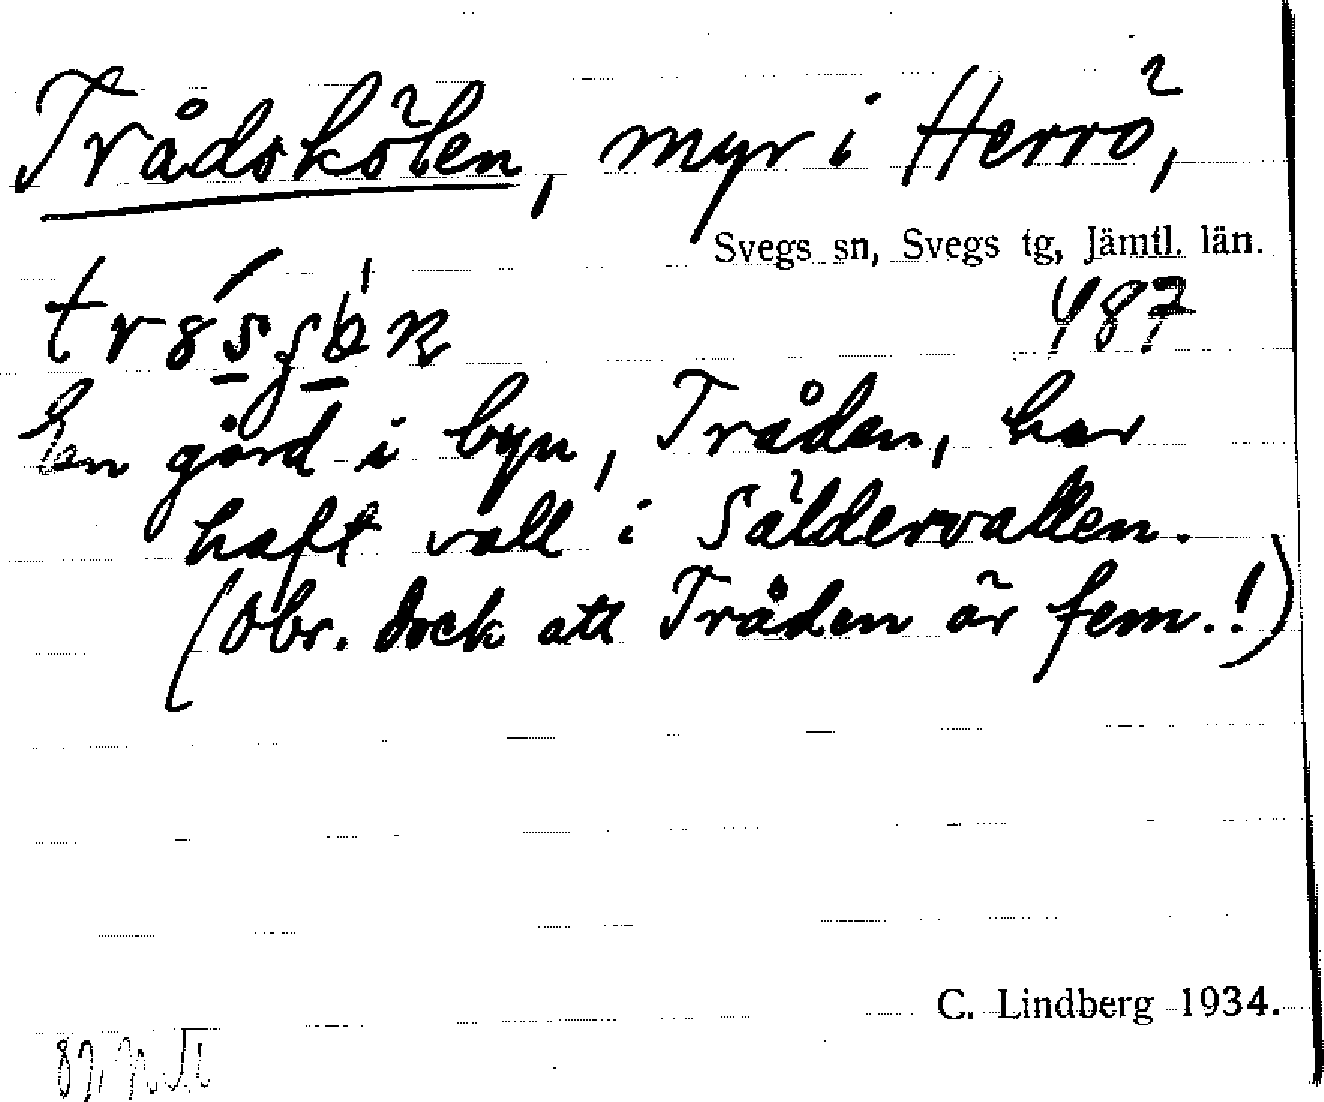 Trådskölen, myr i Herrö,
Svegs sn, Svegs tg, Jämtl. län.
487
En gård i byn, Tråden, har
haft vall i Säldervallen.
(Obr. dock att Tråden är fem.!)
C. Lindberg 1934.